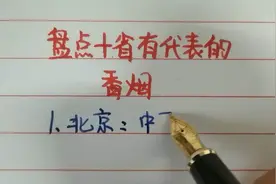 盘点十省有代表的
香烟
1、北京：中